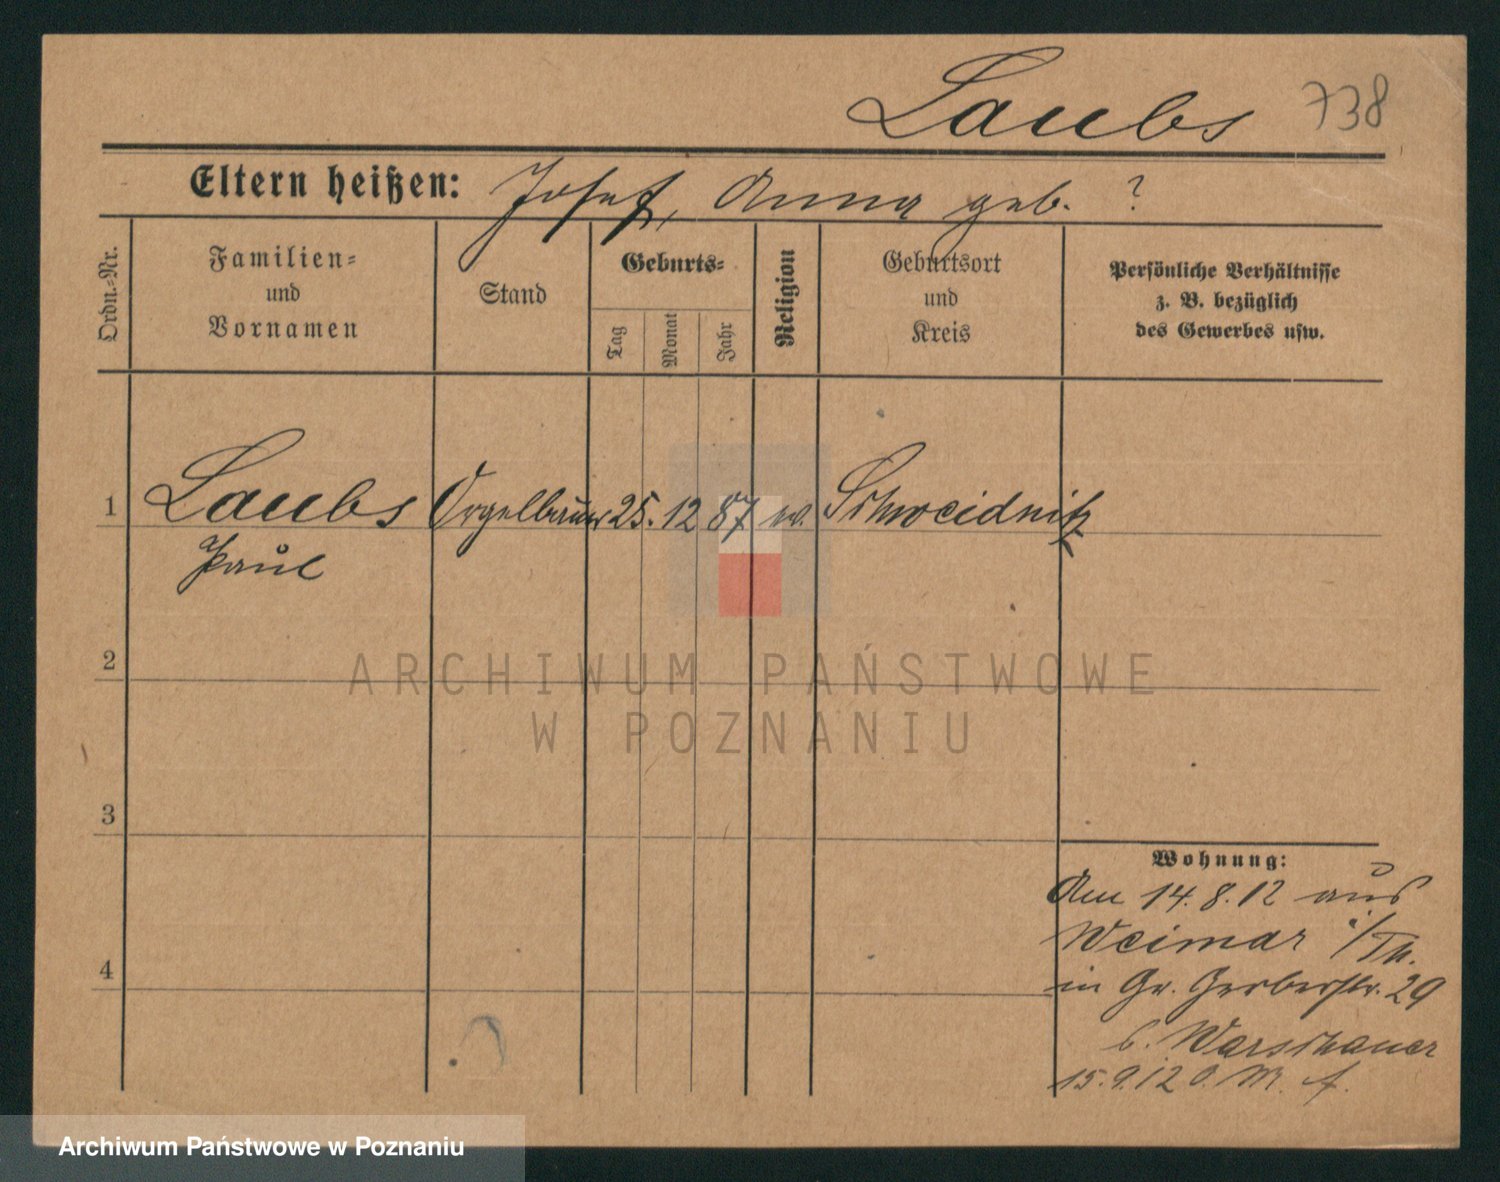 Laubs 738
Eltern heißen: Josef, Anna geb. ?
Ordn.-Nr.
Familien-
und
Vornamen
Stand
Geburts-
Tag
Monat
Jahr
Religion
Geburtsort
und
Kreis
Persönliche Verhältnisse
z. B. bezüglich
des Gewerbes usw.
1 Laubs Orgelbauer 25. 12 87 Schweidnitz
Paul
2
3
4
Wohnung:
Am 14. 8. 12 aus
Weimar i/Th.
in Gr. Gerberstr. 29
b. Warschauer
15. 9. 12 O. M. A.
ARCHIWUM PAŃSTWOWE
W POZNANIU
Archiwum Państwowe w Poznaniu